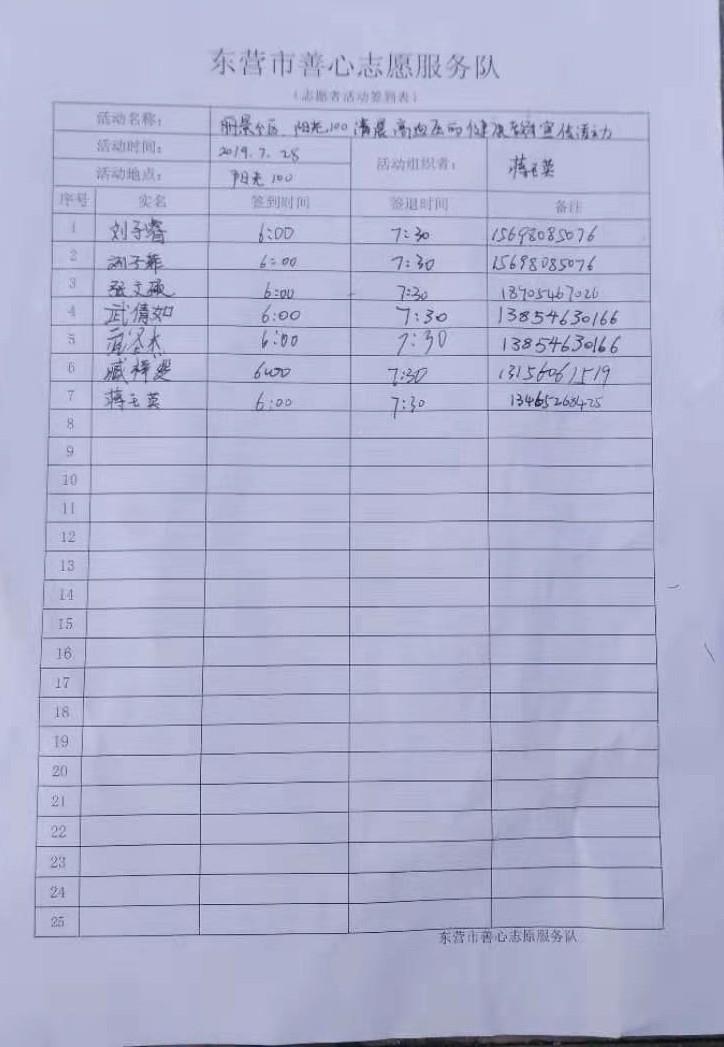 东营市善心志愿服务队
(志愿者活动签到表)
活动名称: 丽景小区、阳光100清晨高血压的健康教育宣传活动
活动时间: 2019.7.28 活动组织者: 蒋玉英
活动地点: 阳光100
序号 实名 签到时间 签退时间 备注
1 刘子睿 6:00 7:30 15698085076
2 刘子菲 6:00 7:30 15698085076
3 张文硕 6:00 7:30 18905467026
4 武倩如 6:00 7:30 13854630166
5 武圣杰 6:00 7:30 13854630166
6 臧梓雯 6:00 7:30 13156061519
7 蒋玉英 6:00 7:30 13465268425
8
9
10
11
12
13
14
15
16
17
18
19
20
21
22
23
24
25
东营市善心志愿服务队